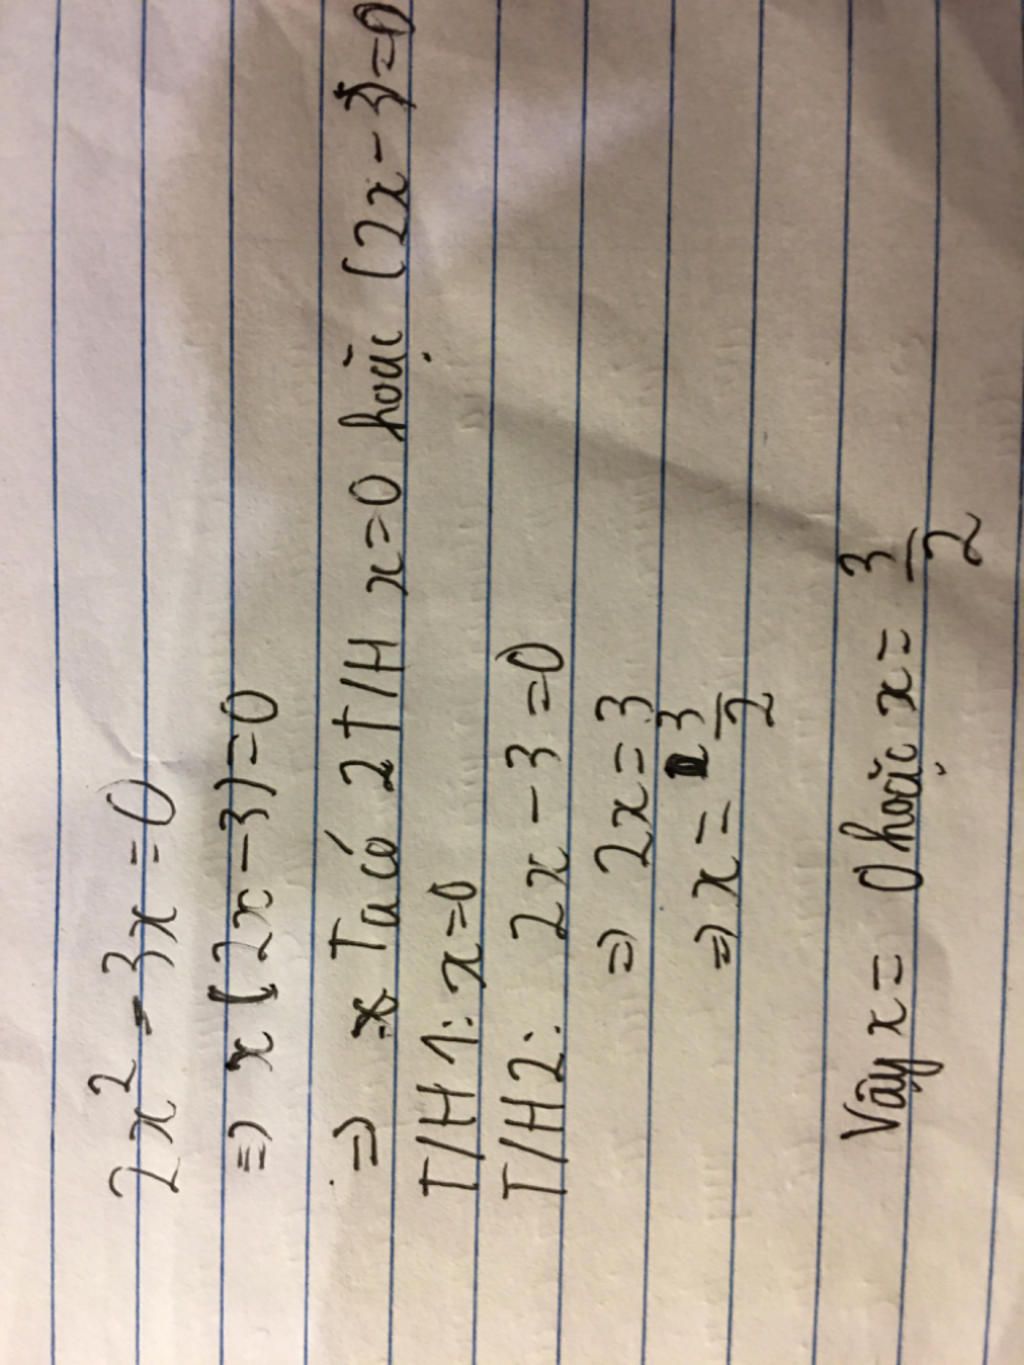 2x² - 3x = 0
⇒ x (2x - 3) = 0
⇒ Ta có 2 T/H x = 0 hoặc (2x - 3) = 0
T/H 1: x = 0
T/H 2: 2x - 3 = 0
⇒ 2x = 3
⇒ x = 3/2
Vậy x = 0 hoặc x = 3/2